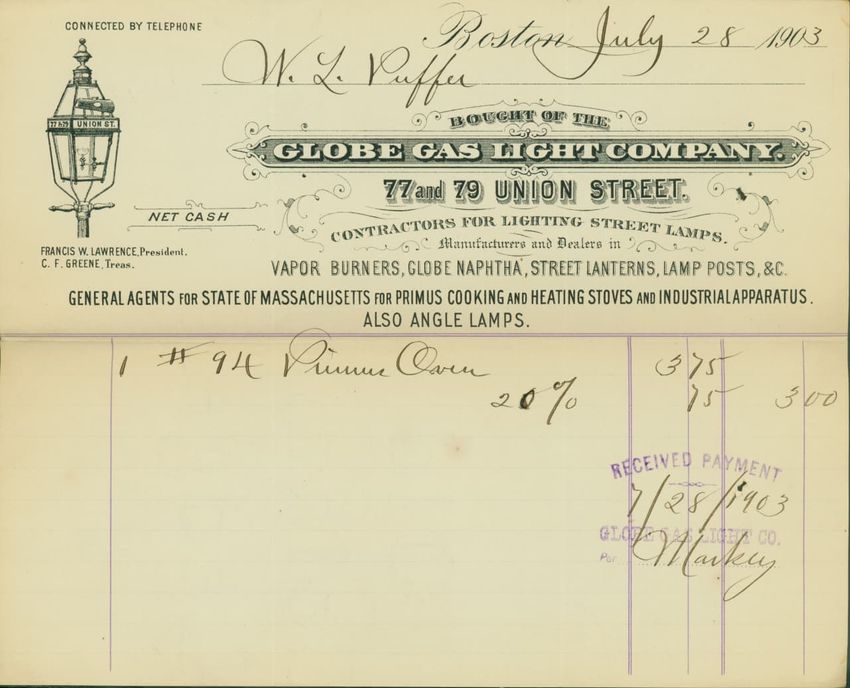 CONNECTED BY TELEPHONE
Boston, July 28 1903
W. L. Puffer
BOUGHT OF THE
GLOBE GAS LIGHT COMPANY.
77 & 79 UNION ST.
77 and 79 UNION STREET.
NET CASH
CONTRACTORS FOR LIGHTING STREET LAMPS.
Manufacturers and Dealers in
FRANCIS W. LAWRENCE, President.
C. F. GREENE, Treas.
VAPOR BURNERS, GLOBE NAPHTHA, STREET LANTERNS, LAMP POSTS, &C.
GENERAL AGENTS FOR STATE OF MASSACHUSETTS FOR PRIMUS COOKING AND HEATING STOVES AND INDUSTRIAL APPARATUS.
ALSO ANGLE LAMPS.
1 # 94 Primus Oven 3 75
20% 75 3 00
RECEIVED PAYMENT
7/28/1903
GLOBE GAS LIGHT CO.
Per Markey